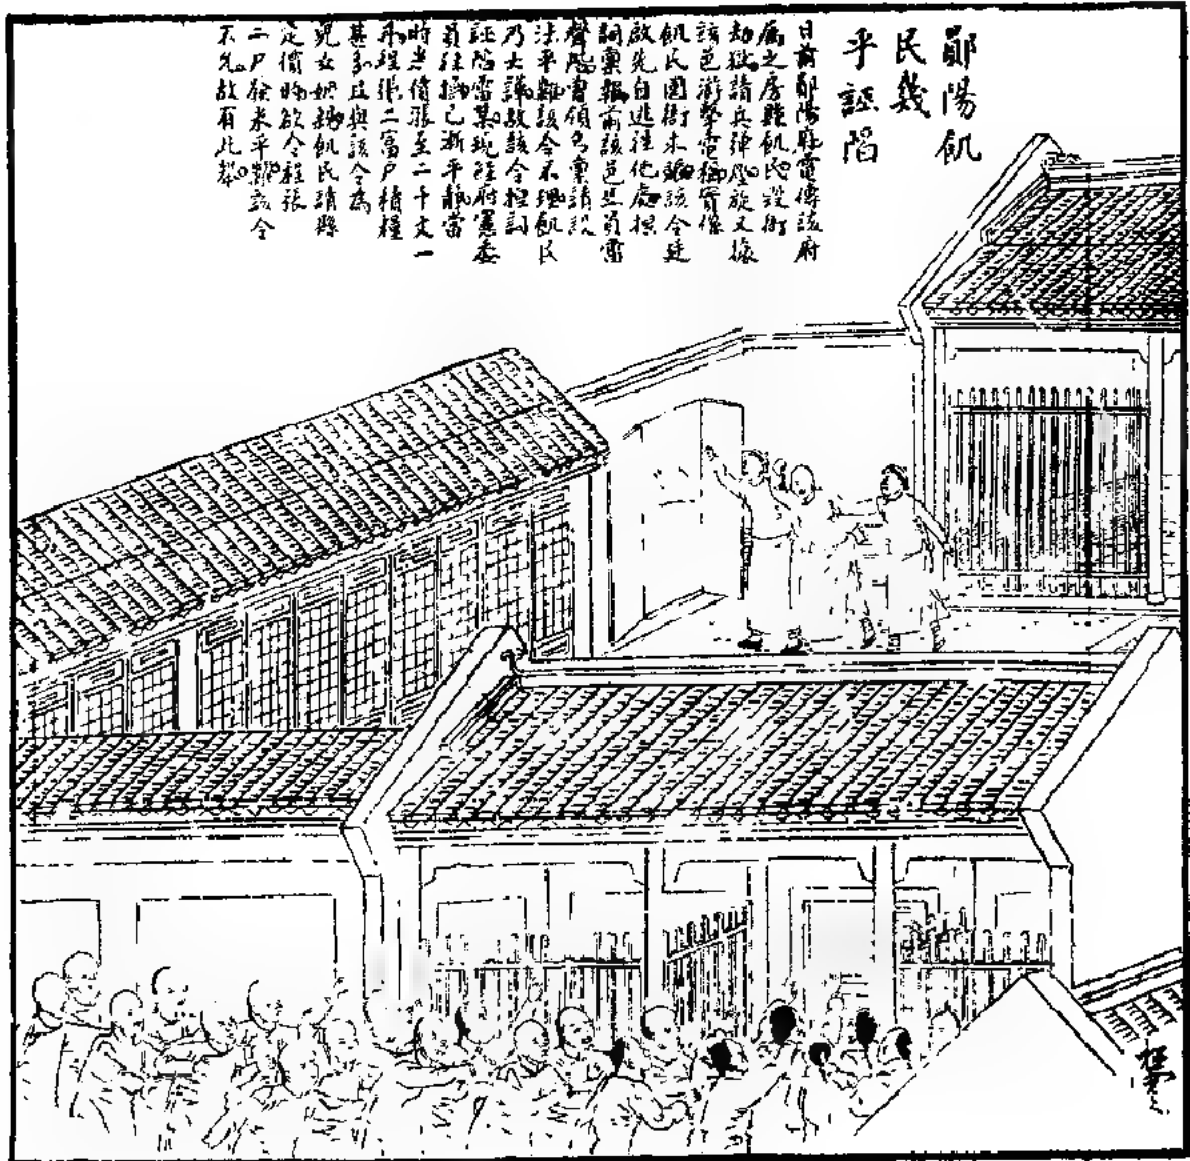 鄖陽飢
民幾
乎誣陷
日前鄖陽府電傳該府
屬之房縣飢民毀衙
劫獄請兵彈壓旋又據
該邑游擊電稱實係
飢民圍衙未鬧該令廷
啟先自逃往他處捏
詞稟報前該邑巡員雷
聲隆曾領名稟請設
法平糶該令不理飢民
乃大譁故該令捏詞
誣陷雷某現經府憲委
員往撫已漸平靜當
時米價漲至二千文一
升程張二富戶積糧
甚多且與該令為
兒女姻親飢民請縣
定價時欲令程張
二戶發米平糶該令
不允故有此舉